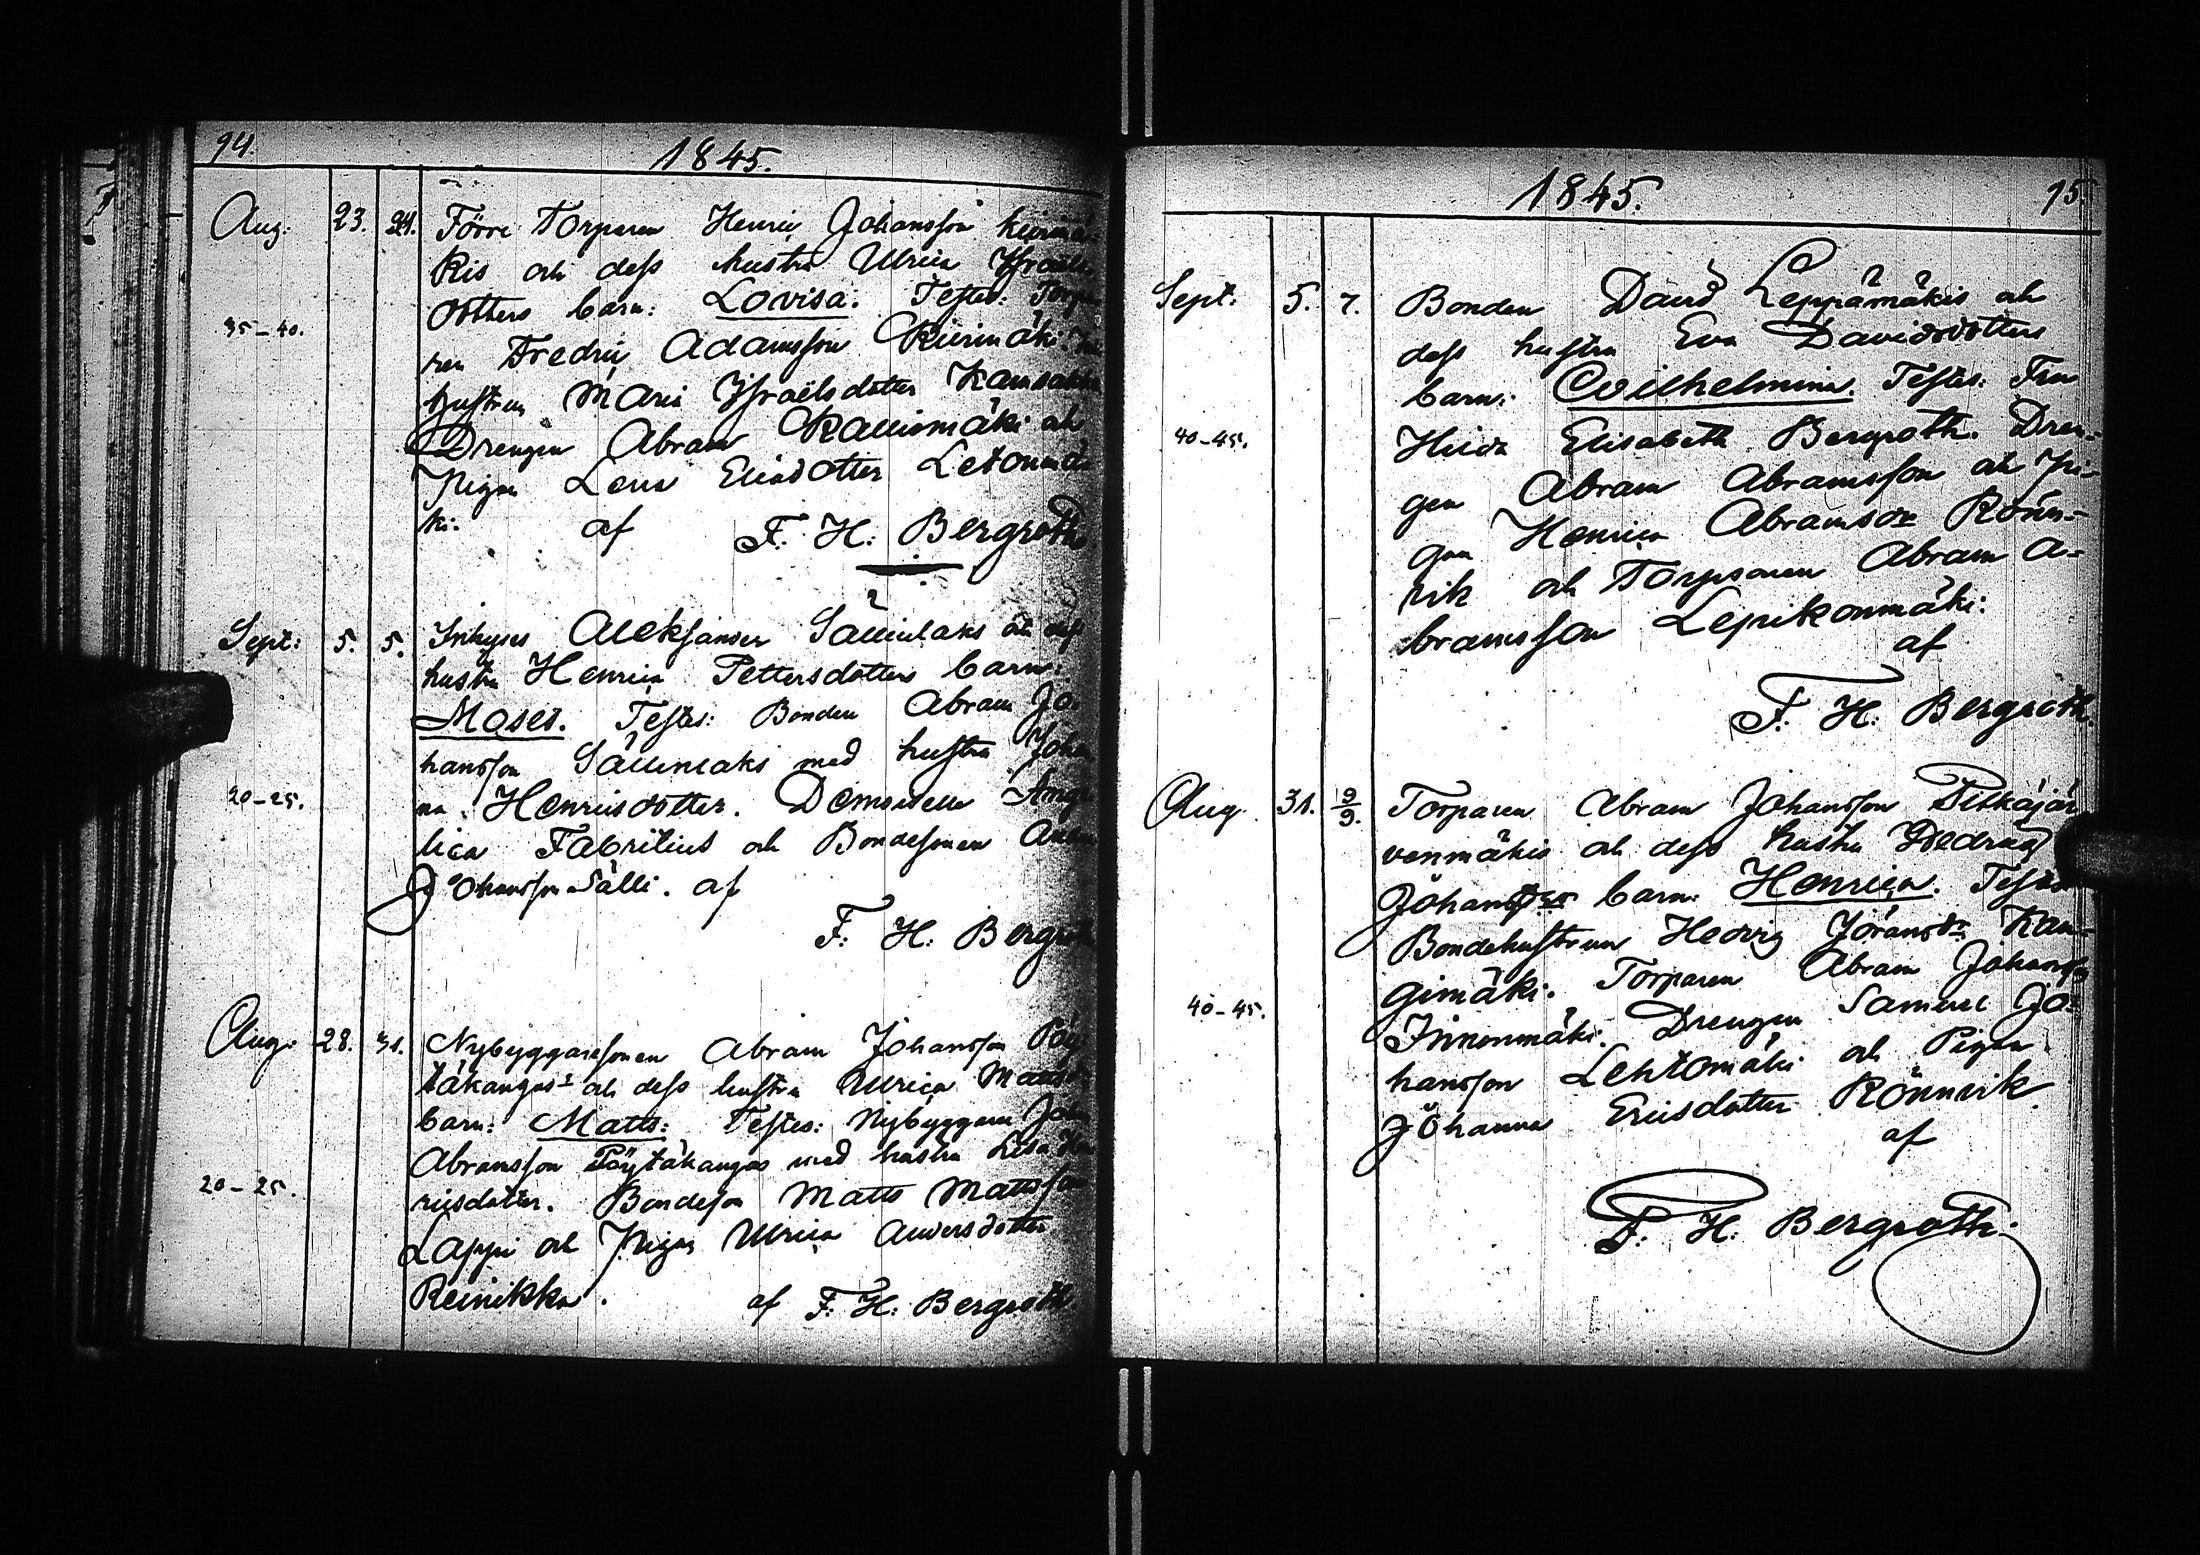 94.
1845.
Aug: 23. 24. Förre Torparen Henric Johansson
kis och dess hustru Ulrica Israels
dotters barn: Lovisa. Testes: Torpa
35-40.
ren Fredric Adamsson Kiirimäki.
hustrun Maria Israëlsdotter
Drengen Abram Kalliomäki och
Pigan Lena Eliædotter Letonmä
ki. af F. H: Bergroth
Sept: 5. 5. Inhyses Aleksander Sällinlaks och dess
hustru Henrica Pettersdotters barn:
Moses. Testes: Bonden Abram Jo
hansson Sällinlaks med hustru Joha
20-25.
na Henricsdotter. Demoiselle Ange
lica Fabritius och Bondesonen
Johansson Sälli. af
F: H: Bergroth
Aug: 28. 31. Nybyggaresonen Abram Johansson Pöy
täkangas och dess hustru Ulrica
barn: Matts: Testes: Nybyggaren Joh
Abramsson Pöytäkangas med hustru Lisa Hen
20-25.
ricsdotter. Bondeson Matts Mattsson
Lappi och Pigan Ulrica Andersdotter
Reinikka. af F: H: Bergroth
1845.
95.
Sept: 5. 7. Bonden David Leppämäkis och
dess hustru Eva Davidsdotters
barn: Wilhelmina. Testes: Fru
40-45.
Hedda Elisabeth Bergroth. Dren-
gen Abram Abramsson och Pi-
gan Henrica Abramsdr Rönn-
vik och Torparen Abram A-
bramsson Lepikonmäki:
af
F: H: Bergroth
Aug. 31. 9/9. Torparen Abram Johansson Pitkäjär
venmäkis och dess hustru
Johansdrs barn: Henrica. Testes
Bondehustrun Hedvig Jöransdr Kan-
gimäki. Torparen Abram Johansson
40-45.
Innonmäki. Drengen Samuel Jo-
hansson Lehtomäki och Pigan
Johanna Ericsdotter Rönnvik.
af
F. H: Bergroth.